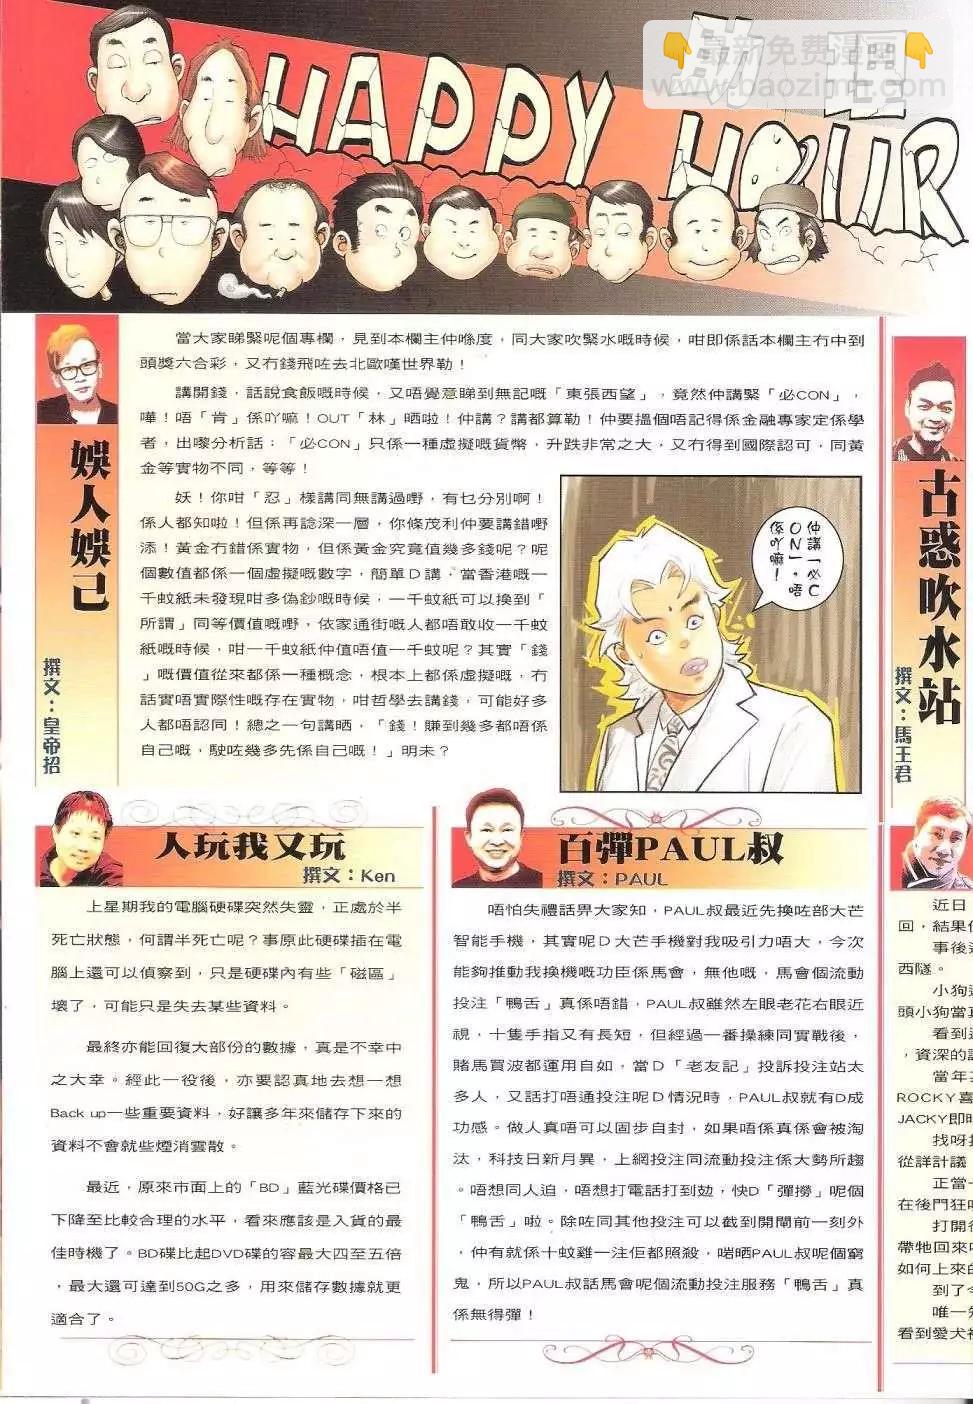 HAPPY HOUR
最新免費漫画
www.baozimh.com
娛人娛己
撰文：皇帝招
當大家睇緊呢個專欄，見到本欄主仲喺度，同大家吹緊水嘅時候，咁即係話本欄主冇中到
頭獎六合彩，又冇錢飛咗去北歐嘆世界勒！
講開錢，話說食飯嘅時候，又唔覺意睇到無記嘅「東張西望」，竟然仲講緊「必CON」，
嘩！唔「肯」係吖嘛！OUT「林」晒啦！仲講？講都算勒！仲要搵個唔記得係金融專家定係學
者，出嚟分析話：「必CON」只係一種虛擬嘅貨幣，升跌非常之大，又冇得到國際認可，同黃
金等實物不同，等等！
妖！你咁「忍」樣講同無講過嘢，有乜分別啊！
係人都知啦！但係再諗深一層，你條茂利仲要講錯嘢
添！黃金冇錯係實物，但係黃金究竟值幾多錢呢？呢
個數值都係一個虛擬嘅數字，簡單D講，當香港嘅一
千蚊紙未發現咁多偽鈔嘅時候，一千蚊紙可以換到「
所謂」同等價值嘅嘢，依家通街嘅人都唔敢收一千蚊
紙嘅時候，咁一千蚊紙仲值唔值一千蚊呢？其實「錢
」嘅價值從來都係一種概念，根本上都係虛擬嘅，冇
話實唔實際性嘅存在實物，咁哲學去講錢，可能好多
人都唔認同！總之一句講晒，「錢！賺到幾多都唔係
自己嘅，駛咗幾多先係自己嘅！」明未？
仲講「必C
ON」，唔
係吖嘛！
古惑吹水站
撰文：馬王君
人玩我又玩
撰文：Ken
上星期我的電腦硬碟突然失靈，正處於半
死亡狀態，何謂半死亡呢？事原此硬碟插在電
腦上還可以偵察到，只是硬碟內有些「磁區」
壞了，可能只是失去某些資料。
最終亦能回復大部份的數據，真是不幸中
之大幸。經此一役後，亦要認真地去想一想
Back up一些重要資料，好讓多年來儲存下來的
資料不會就些煙消雲散。
最近，原來市面上的「BD」藍光碟價格已
下降至比較合理的水平，看來應該是入貨的最
佳時機了。BD碟比起DVD碟的容最大四至五倍
，最大還可達到50G之多，用來儲存數據就更
適合了。
百彈PAUL叔
撰文：PAUL
唔怕失禮話畀大家知，PAUL叔最近先換咗部大芒
智能手機，其實呢D大芒手機對我吸引力唔大，今次
能夠推動我換機嘅功臣係馬會，無他嘅，馬會個流動
投注「鴨舌」真係唔錯，PAUL叔雖然左眼老花右眼近
視，十隻手指又有長短，但經過一番操練同實戰後，
賭馬買波都運用自如，當D「老友記」投訴投注站太
多人，又話打唔通投注呢D情況時，PAUL叔就有D成
功感。做人真唔可以固步自封，如果唔係真係會被淘
汰，科技日新月異，上網投注同流動投注係大勢所趨
。唔想同人迫，唔想打電話打到攰，快D「彈撈」呢個
「鴨舌」啦。除咗同其他投注可以截到開閘前一刻外
，仲有就係十蚊雞一注佢都照殺，啱晒PAUL叔呢個窮
鬼，所以PAUL叔話馬會呢個流動投注服務「鴨舌」真
係無得彈！
近日
回，結果
事後
西隧。
小狗
頭小狗當
看到
，資深的
當年
ROCKY喜
JACKY即
找呀
從詳計議
正當
在後門狂
打開
帶牠回來
如何上來
到了
唯一
看到愛犬